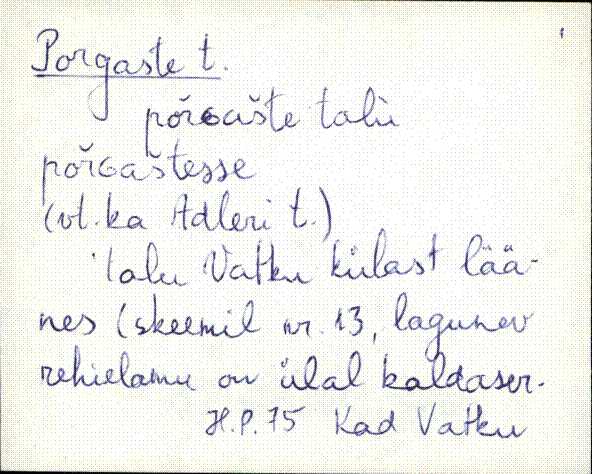 Porgaste t.
põrGašte talù
põrGaštesse
(vt. ka Adleri t.)
talu Vatku külast lää-
nes (skeemil nr. 13, lagunev
rehielamu on ülal kaldaser-
H.P. 75 Kad Vatku